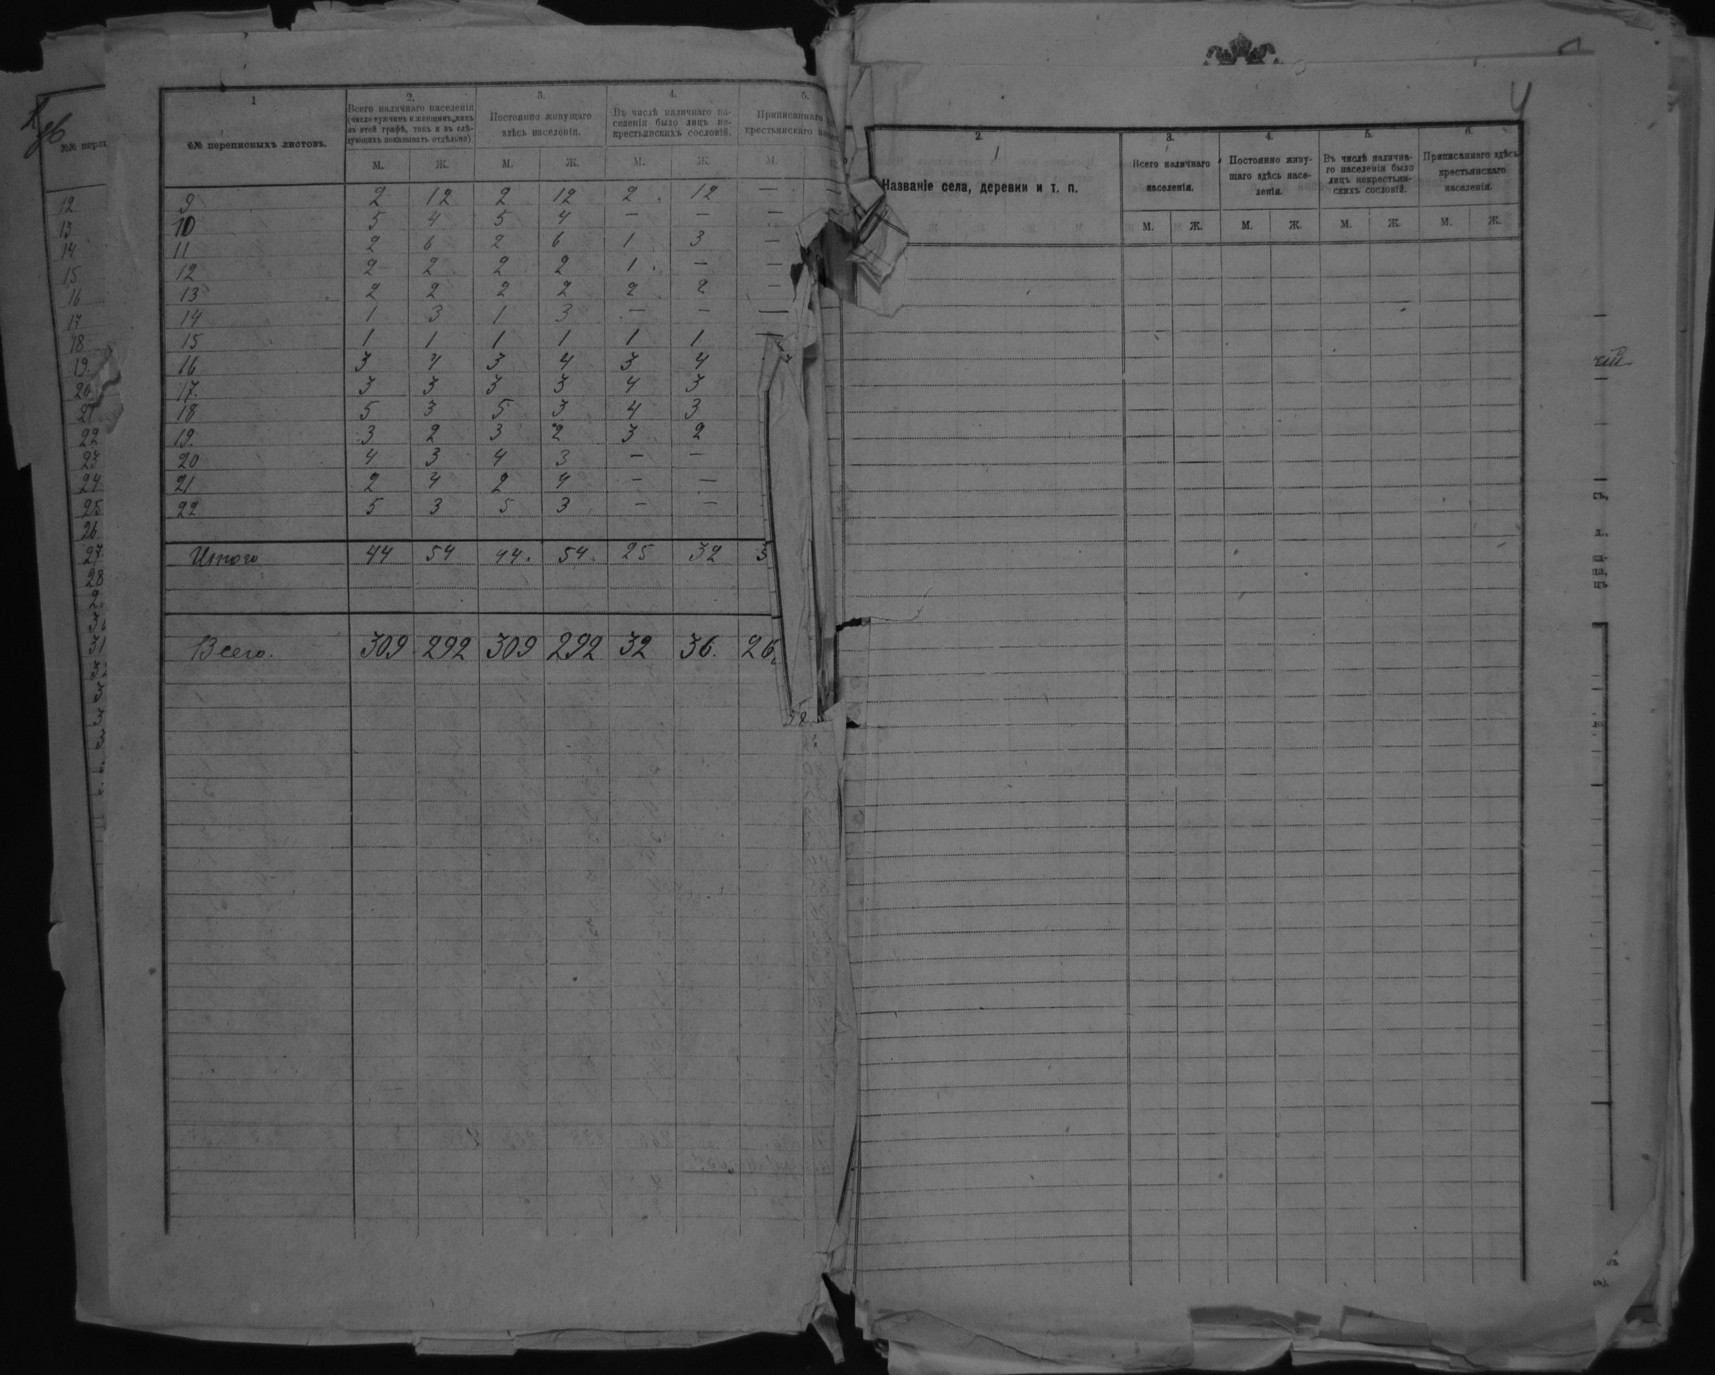 №№ перепи
12
13
14
15
16
17
18
19.
20
21
22
23
24
25
26
27
28
29
31
1 2. 3. 4. 5.
№№ переписныхъ листовъ. Всего наличнаго населенія (число мужчинъ и женщинъ, какъ въ этой графѣ, такъ и въ слѣдующихъ показывать отдѣльно) Постоянно живущаго здѣсь населенія. Въ числѣ наличнаго населенія было лицъ некрестьянскихъ сословій. Приписаннаго крестьянскаго
М. Ж. М. Ж. М. Ж. М.
9 2 12 2 12 2 12 —
10 5 4 5 4 — — —
11 2 6 2 6 1 3 —
12 2 2 2 2 1 — —
13 2 2 2 2 2 2 —
14 1 3 1 3 — — —
15 1 1 1 1 1 1 —
16 3 4 3 4 3 4
17. 3 3 3 3 4 3
18 5 3 5 3 4 3
19. 3 2 3 2 3 2
20 4 3 4 3 — —
21 2 4 2 4 — —
22 5 3 5 3 — —
Итого 44 54 44. 54. 25 32 3
Всего. 309 292 309 292 32 36. 26
4
2. 3. 4. 5. 6.
Названіе села, деревни и т. п. Всего наличнаго населенія. Постоянно живущаго здѣсь населенія. Въ числѣ наличнаго населенія было лицъ некрестьянскихъ сословій. Приписаннаго здѣсь крестьянскаго населенія.
М. Ж. М. Ж. М. Ж. М. Ж.